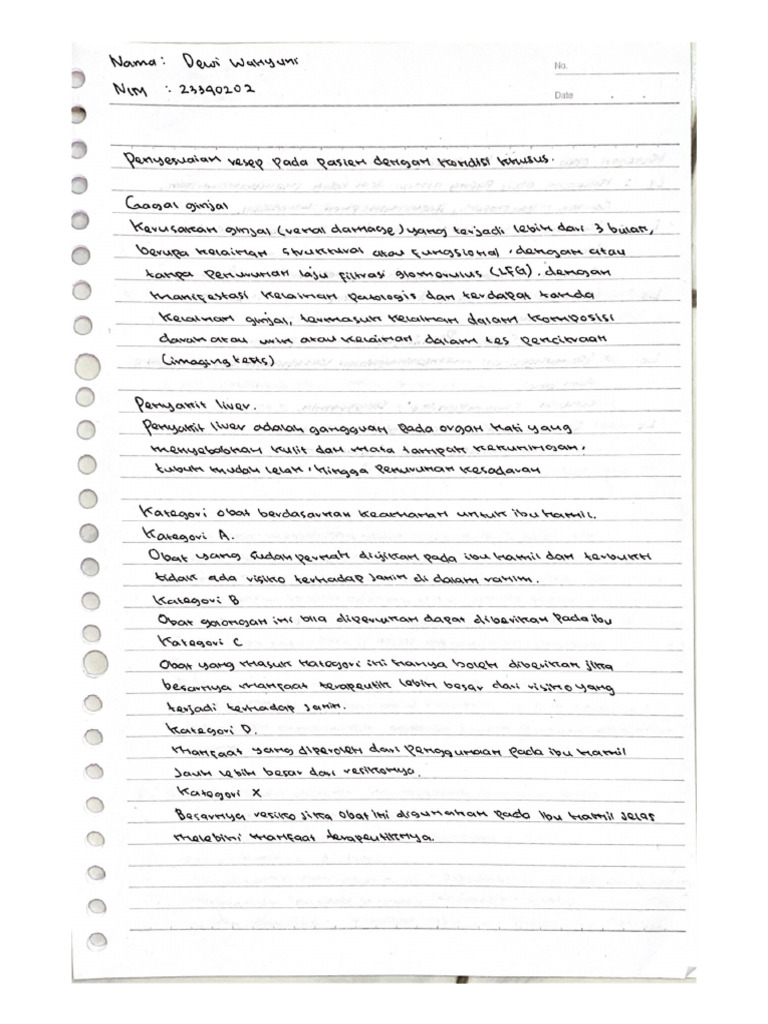 Nama : Dewi Wahyuni
No.
NIM : 23390202
Date
Penyesuaian resep pada pasien dengan kondisi khusus.
Gagal ginjal
Kerusakan ginjal (renal damage) yang terjadi lebih dari 3 bulan,
berupa kelainan struktural atau fungsional, dengan atau
tanpa penurunan laju filtrasi glomerulus (LFG). dengan
manifestasi kelainan patologis dan terdapat tanda
kelainan ginjal, termasuk kelainan dalam komposisi
darah atau urin atau kelainan dalam tes pencitraan
(imaging tests)
Penyakit liver.
Penyakit liver adalah gangguan pada organ hati yang
menyebabkan kulit dan mata tampak kekuningan,
tubuh mudah lelah, hingga penurunan kesadaran
Kategori obat berdasarkan keamanan untuk ibu hamil.
Kategori A.
Obat yang sudah pernah diujikan pada ibu hamil dan terbukti
tidak ada risiko terhadap janin di dalam rahim.
Kategori B
Obat golongan ini bila diperlukan dapat diberikan pada ibu
Kategori C
Obat yang masuk kategori ini hanya boleh diberikan jika
besarnya manfaat terapeutik lebih besar dari risiko yang
terjadi terhadap janin.
Kategori D.
Manfaat yang diperoleh dari penggunaan pada ibu hamil
jauh lebih besar dari resikonya.
Kategori X
Besarnya resiko jika obat ini digunakan pada ibu hamil jelas
melebihi manfaat terapeutiknya.